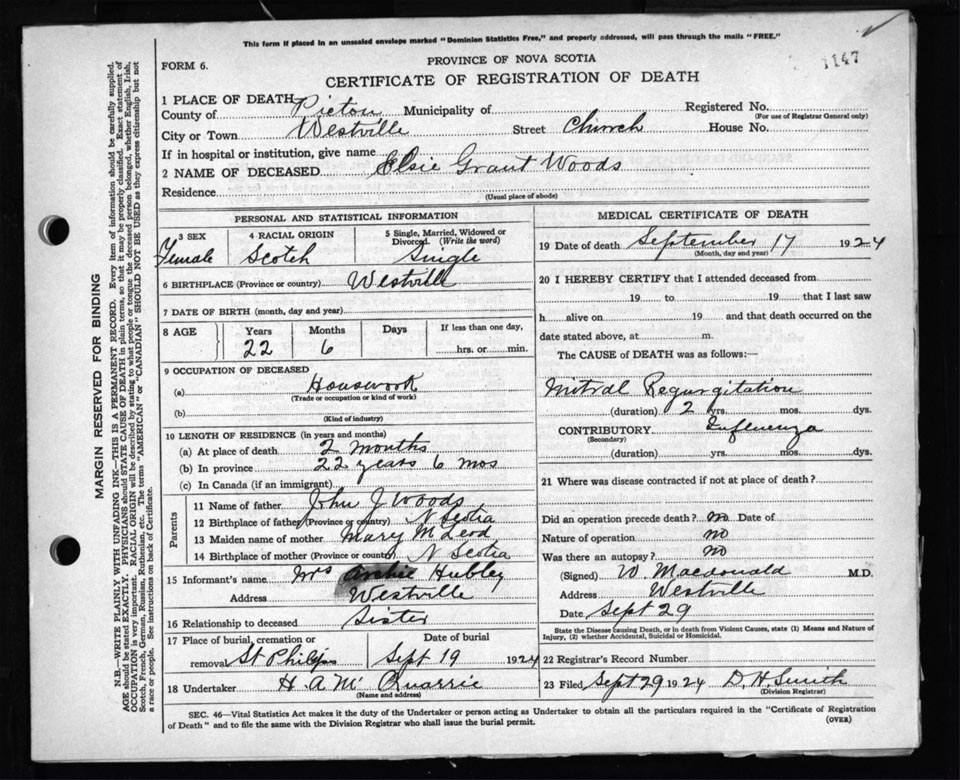 This form if placed in an unsealed envelope marked "Dominion Statistics Free," and properly addressed, will pass through the mails "FREE."
1147
FORM 6.
PROVINCE OF NOVA SCOTIA
CERTIFICATE OF REGISTRATION OF DEATH
1 PLACE OF DEATH
County of Pictou Municipality of Registered No.
(For use of Registrar General only)
City or Town Westville Street Church House No.
If in hospital or institution, give name
2 NAME OF DECEASED Elsie Grant Woods
Residence
(Usual place of abode)
PERSONAL AND STATISTICAL INFORMATION
3 SEX 4 RACIAL ORIGIN 5 Single, Married, Widowed or Divorced. (Write the word)
Female Scotch Single
6 BIRTHPLACE (Province or country) Westville
7 DATE OF BIRTH (month, day and year)
8 AGE Years Months Days If less than one day,
22 6 hrs. or min.
9 OCCUPATION OF DECEASED
(a) Housework
(Trade or occupation or kind of work)
(b)
(Kind of industry)
10 LENGTH OF RESIDENCE (in years and months)
(a) At place of death 2 months
(b) In province 22 years 6 mos
(c) In Canada (if an immigrant)
Parents
11 Name of father John J Woods
12 Birthplace of father (Province or country) N Scotia
13 Maiden name of mother Mary McLeod
14 Birthplace of mother (Province or country) N Scotia
15 Informant's name Mrs Archie Hubley
Address Westville
16 Relationship to deceased Sister
17 Place of burial, cremation or Date of burial
removal St Philips Sept 19 1924
18 Undertaker H. A. McQuarrie
(Name and address)
MEDICAL CERTIFICATE OF DEATH
19 Date of death September 17 1924
(Month, day and year)
20 I HEREBY CERTIFY that I attended deceased from
19 to 19 that I last saw
h alive on 19 and that death occurred on the
date stated above, at m.
The CAUSE of DEATH was as follows:—
Mitral Regurgitation
(duration) 2 yrs. mos. dys.
CONTRIBUTORY Influenza
(Secondary)
(duration) yrs. mos. dys.
21 Where was disease contracted if not at place of death?
Did an operation precede death? no Date of
Nature of operation no
Was there an autopsy? no
(Signed) W Macdonald M.D.
Address Westville
Date Sept 29
State the Disease causing Death, or in death from Violent Causes, state (1) Means and Nature of
Injury, (2) whether Accidental, Suicidal or Homicidal.
22 Registrar's Record Number
23 Filed Sept 29 1924 D H Smith
(Division Registrar)
SEC. 46—Vital Statistics Act makes it the duty of the Undertaker or person acting as Undertaker to obtain all the particulars required in the "Certificate of Registration
of Death" and to file the same with the Division Registrar who shall issue the burial permit.
(OVER)
MARGIN RESERVED FOR BINDING
N.B.—WRITE PLAINLY WITH UNFADING INK—THIS IS A PERMANENT RECORD. Every item of information should be carefully supplied.
AGE should be stated EXACTLY. PHYSICIANS should STATE CAUSE OF DEATH in plain terms, so that it may be properly classified. Exact statement of
OCCUPATION is very important. RACIAL ORIGIN will be described by stating to what people or tongue the deceased person belonged, whether English, Irish,
Scotch, French, German, Russian, Ruthenian, etc. The terms "AMERICAN" or "CANADIAN" SHOULD NOT BE USED as they express citizenship but not
a race or people. See instructions on back of Certificate.